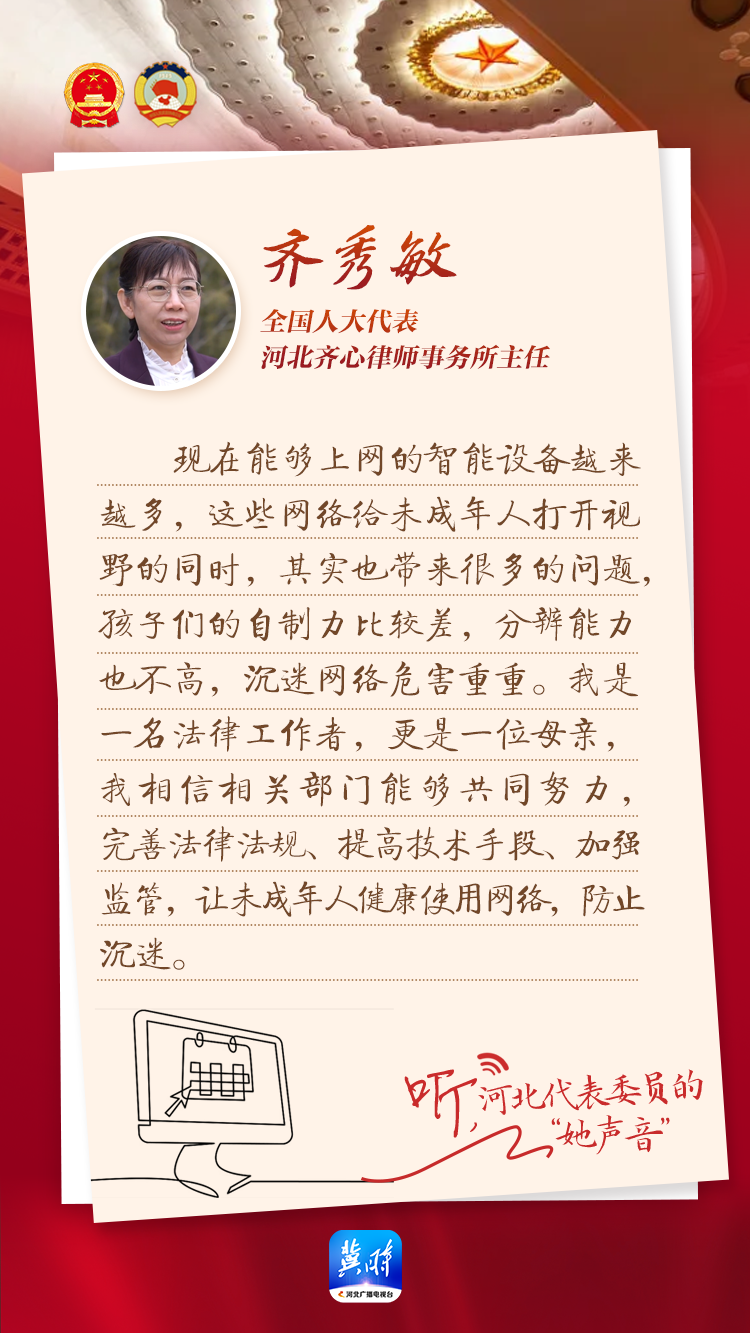 齐秀敏
全国人大代表
河北齐心律师事务所主任
现在能够上网的智能设备越来
越多，这些网络给未成年人打开视
野的同时，其实也带来很多的问题，
孩子们的自制力比较差，分辨能力
也不高，沉迷网络危害重重。我是
一名法律工作者，更是一位母亲，
我相信相关部门能够共同努力，
完善法律法规、提高技术手段、加强
监管，让未成年人健康使用网络，防止
沉迷。
听，河北代表委员的
“她声音”
冀时
河北广播电视台